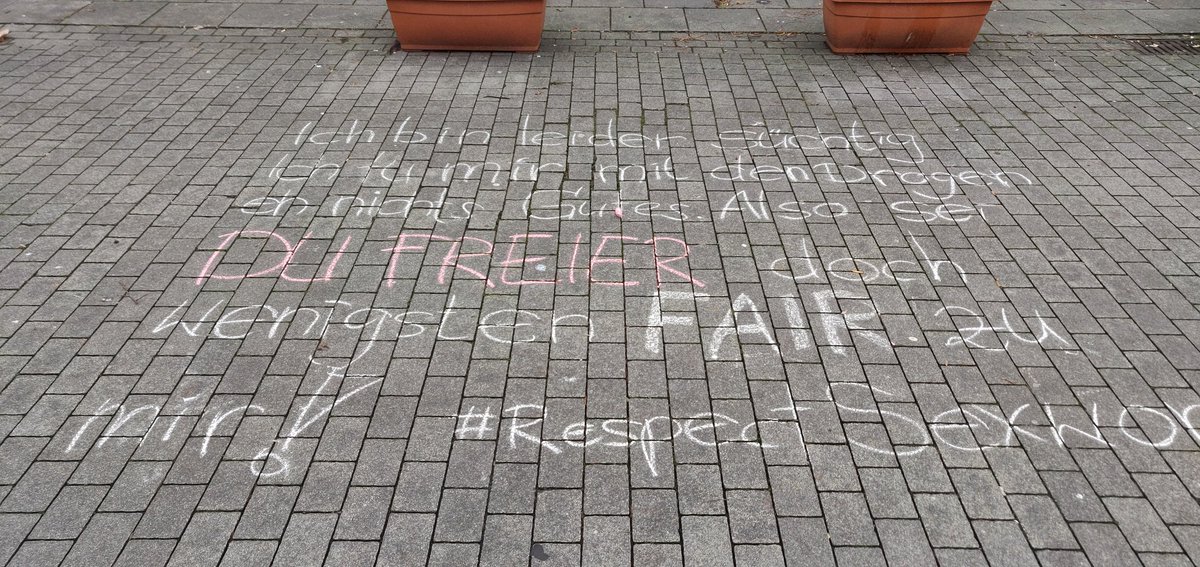 Ich bin leider Süchtig
Ich tu mir mit den Drogen
eh nichts Gutes. Also sei
DU FREIER doch
wenigsten FAIR zu
mir! #Respect-Sexwor